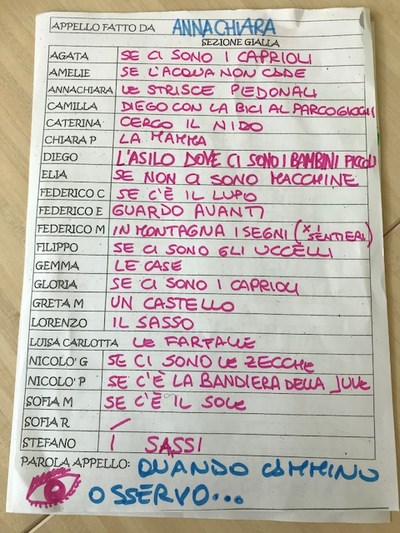 APPELLO FATTO DA ANNACHIARA
SEZIONE GIALLA
AGATA SE CI SONO I CAPRIOLI
AMELIE SE L'ACQUA NON CADE
ANNACHIARA LE STRISCE PEDONALI
CAMILLA DIEGO CON LA BICI AL PARCOGIOCHI
CATERINA CERCO IL NIDO
CHIARA P LA MAMMA
DIEGO L'ASILO DOVE CI SONO I BAMBINI PICCOLI
ELIA SE NON CI SONO MACCHINE
FEDERICO C SE C'È IL LUPO
FEDERICO E GUARDO AVANTI
FEDERICO M IN MONTAGNA I SEGNI (X I SENTIERI)
FILIPPO SE CI SONO GLI UCCELLI
GEMMA LE CASE
GLORIA SE CI SONO I CAPRIOLI
GRETA M UN CASTELLO
LORENZO IL SASSO
LUISA CARLOTTA LE FARFALLE
NICOLO' G SE CI SONO LE ZECCHE
NICOLO' P SE C'È LA BANDIERA DELLA JUVE
SOFIA M SE C'È IL SOLE
SOFIA R /
STEFANO I SASSI
PAROLA APPELLO: QUANDO CAMMINO
OSSERVO...